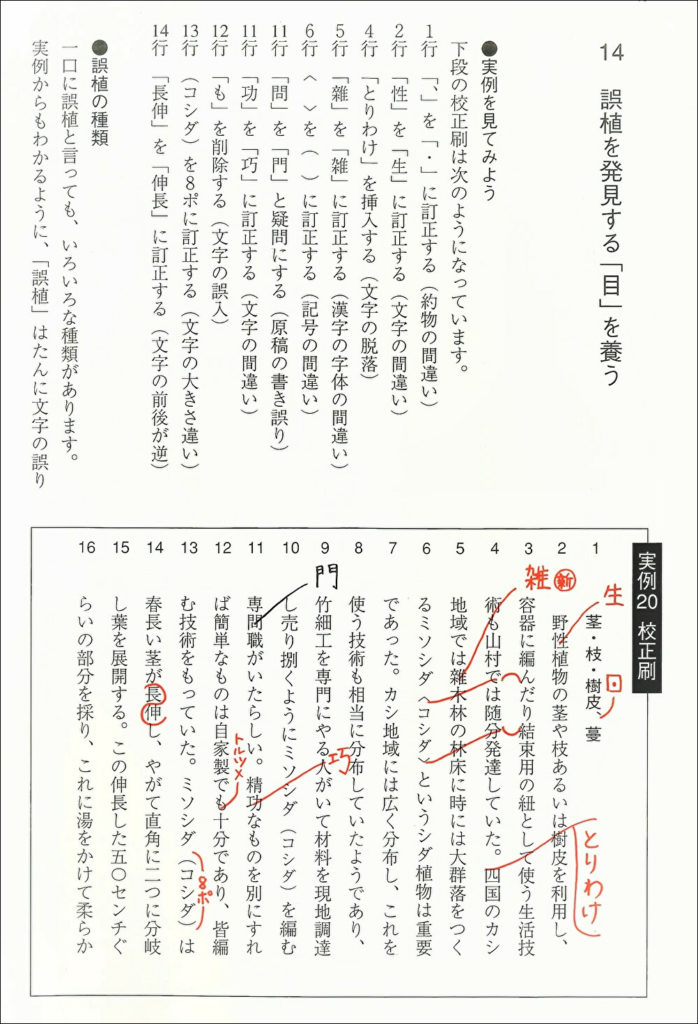 14 誤植を発見する「目」を養う
●実例を見てみよう
下段の校正刷は次のようになっています。
1行 「、」を「・」に訂正する(約物の間違い)
2行 「性」を「生」に訂正する(文字の間違い)
4行 「とりわけ」を挿入する(文字の脱落)
5行 「雜」を「雑」に訂正する(漢字の字体の間違い)
6行 〈 〉を( )に訂正する(記号の間違い)
11行 「問」を「門」と疑問にする(原稿の書き誤り)
11行 「功」を「巧」に訂正する(文字の間違い)
12行 「も」を削除する(文字の誤入)
13行 (コシダ)を8ポに訂正する(文字の大きさ違い)
14行 「長伸」を「伸長」に訂正する(文字の前後が逆)
●誤植の種類
一口に誤植と言っても、いろいろな種類があります。
実例からもわかるように、「誤植」はたんに文字の誤り
実例20 校正刷
1 茎・枝・樹皮、蔓
・
生
2 野性植物の茎や枝あるいは樹皮を利用し、
3 容器に編んだり結束用の紐として使う生活技
とりわけ
4 術も山村では随分発達していた。四国のカシ
雑 新
5 地域では雜木林の林床に時には大群落をつく
6 るミソシダ〈コシダ〉というシダ植物は重要
7 であった。カシ地域には広く分布し、これを
8 使う技術も相当に分布していたようであり、
9 竹細工を専門にやる人がいて材料を現地調達
10 し売り捌くようにミソシダ(コシダ)を編む
門
巧
11 専問職がいたらしい。精功なものを別にすれ
トルツメ
12 ば簡単なものは自家製でも十分であり、皆編
13 む技術をもっていた。ミソシダ(コシダ)は
8ポ
14 春長い茎が長伸し、やがて直角に二つに分岐
15 し葉を展開する。この伸長した五〇センチぐ
16 らいの部分を採り、これに湯をかけて柔らか